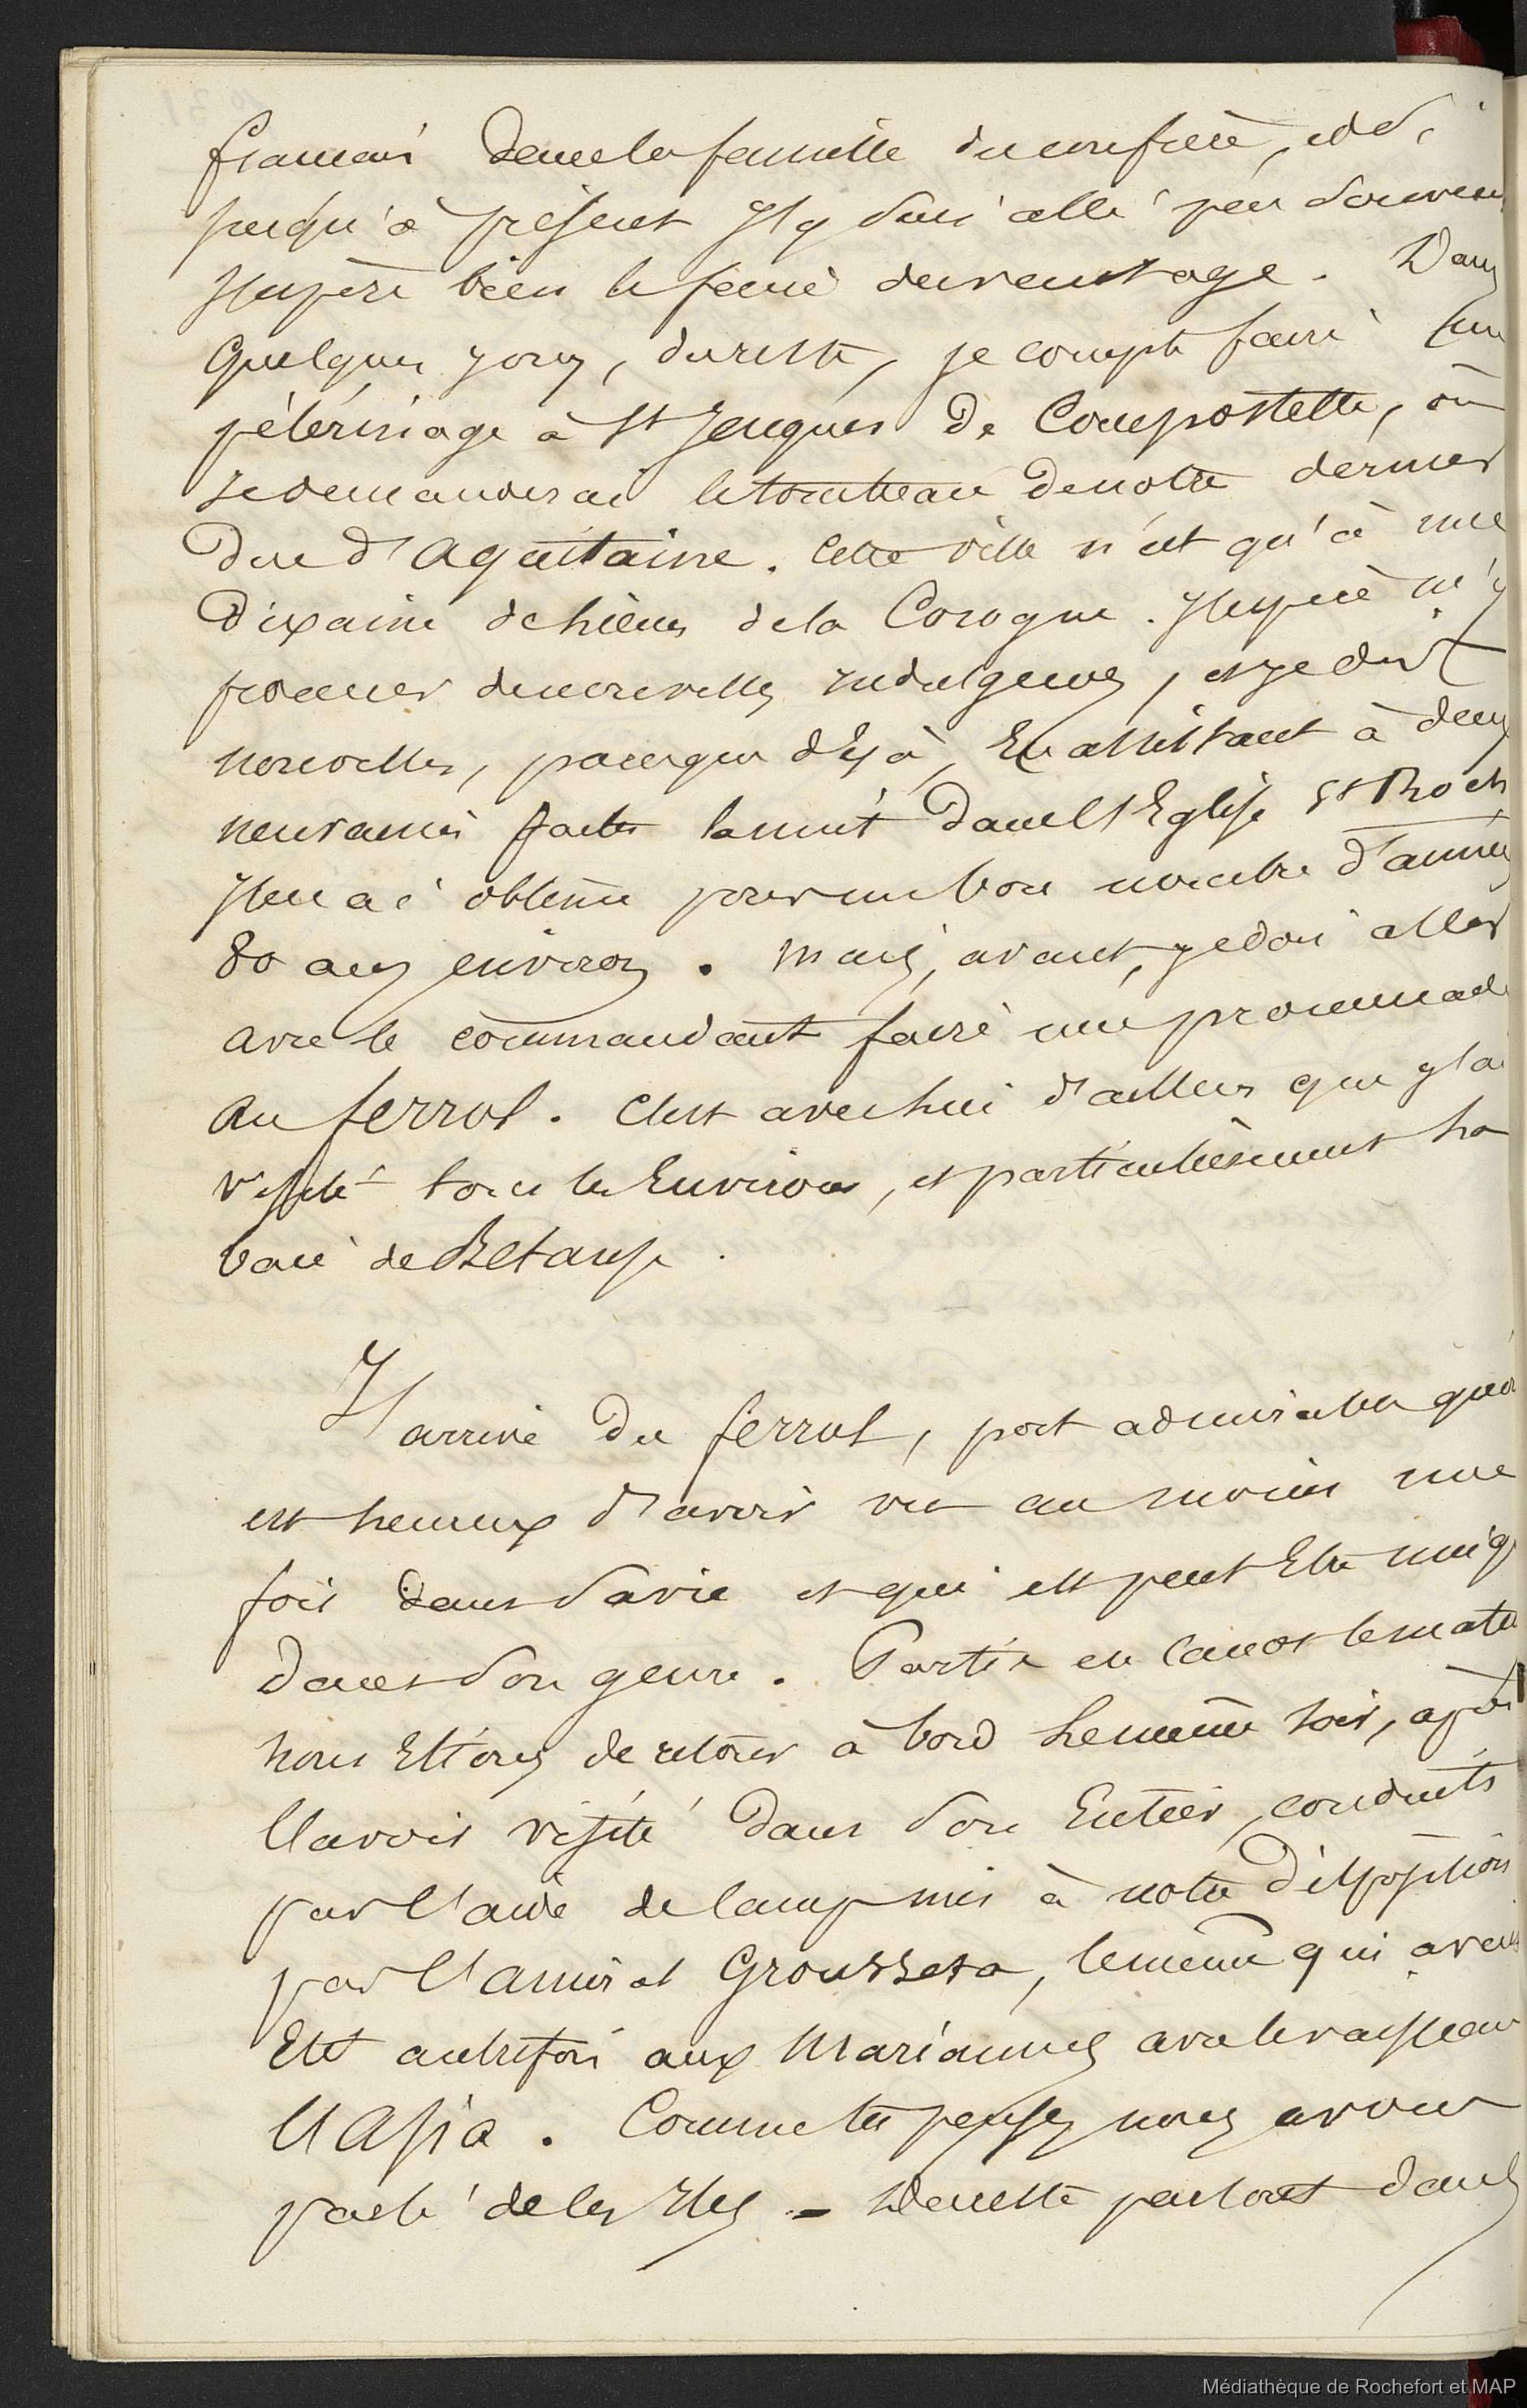 français dans la famille du confrère, et si
jusqu'à présent j'y suis allé peu souvent
j'espère bien le faire davantage. Dans
quelques jours, du reste, je compte faire un
pélérinage à St Jacques de Compostelle, où
je demanderai le tombeau de notre dernier
Duc d'Aquitaine. Cette ville n'est qu'à une
dixaine de lieues de la Corogne. J'espère m'y
procurer de nouvelles indulgences, et je dis
nouvelles, parceque déjà, en assistant à deux
neuvaines faites la nuit dans l'Eglise St Roch
j'en ai obtenu pour un bon nombre d'années
80 ans environ. Mais, avant, je dois aller
avec le commandant faire une promenade
au ferrol. C'est avec lui d'ailleurs que j'ai
visité tous les Environs, et particulièrement la
baie de Betanzos.
J'arrive du ferrol, port admirable qu'on
est heureux d'avoir vu au moins une
fois dans sa vie et qui est peut Etre uniq
dans son genre. Partis en canot le matin
nous Etions de retour à bord le même soir, après
l'avoir visité dans son Entier, conduits
par l'aide de camp mis à notre disposition
par l'amiral Groussera, le même qui avait
Eté autrefois aux Mariannes avec le vaisseau
l'Asia. Comme tu penses nous avons
parlé de les Iles - de cette partout dans